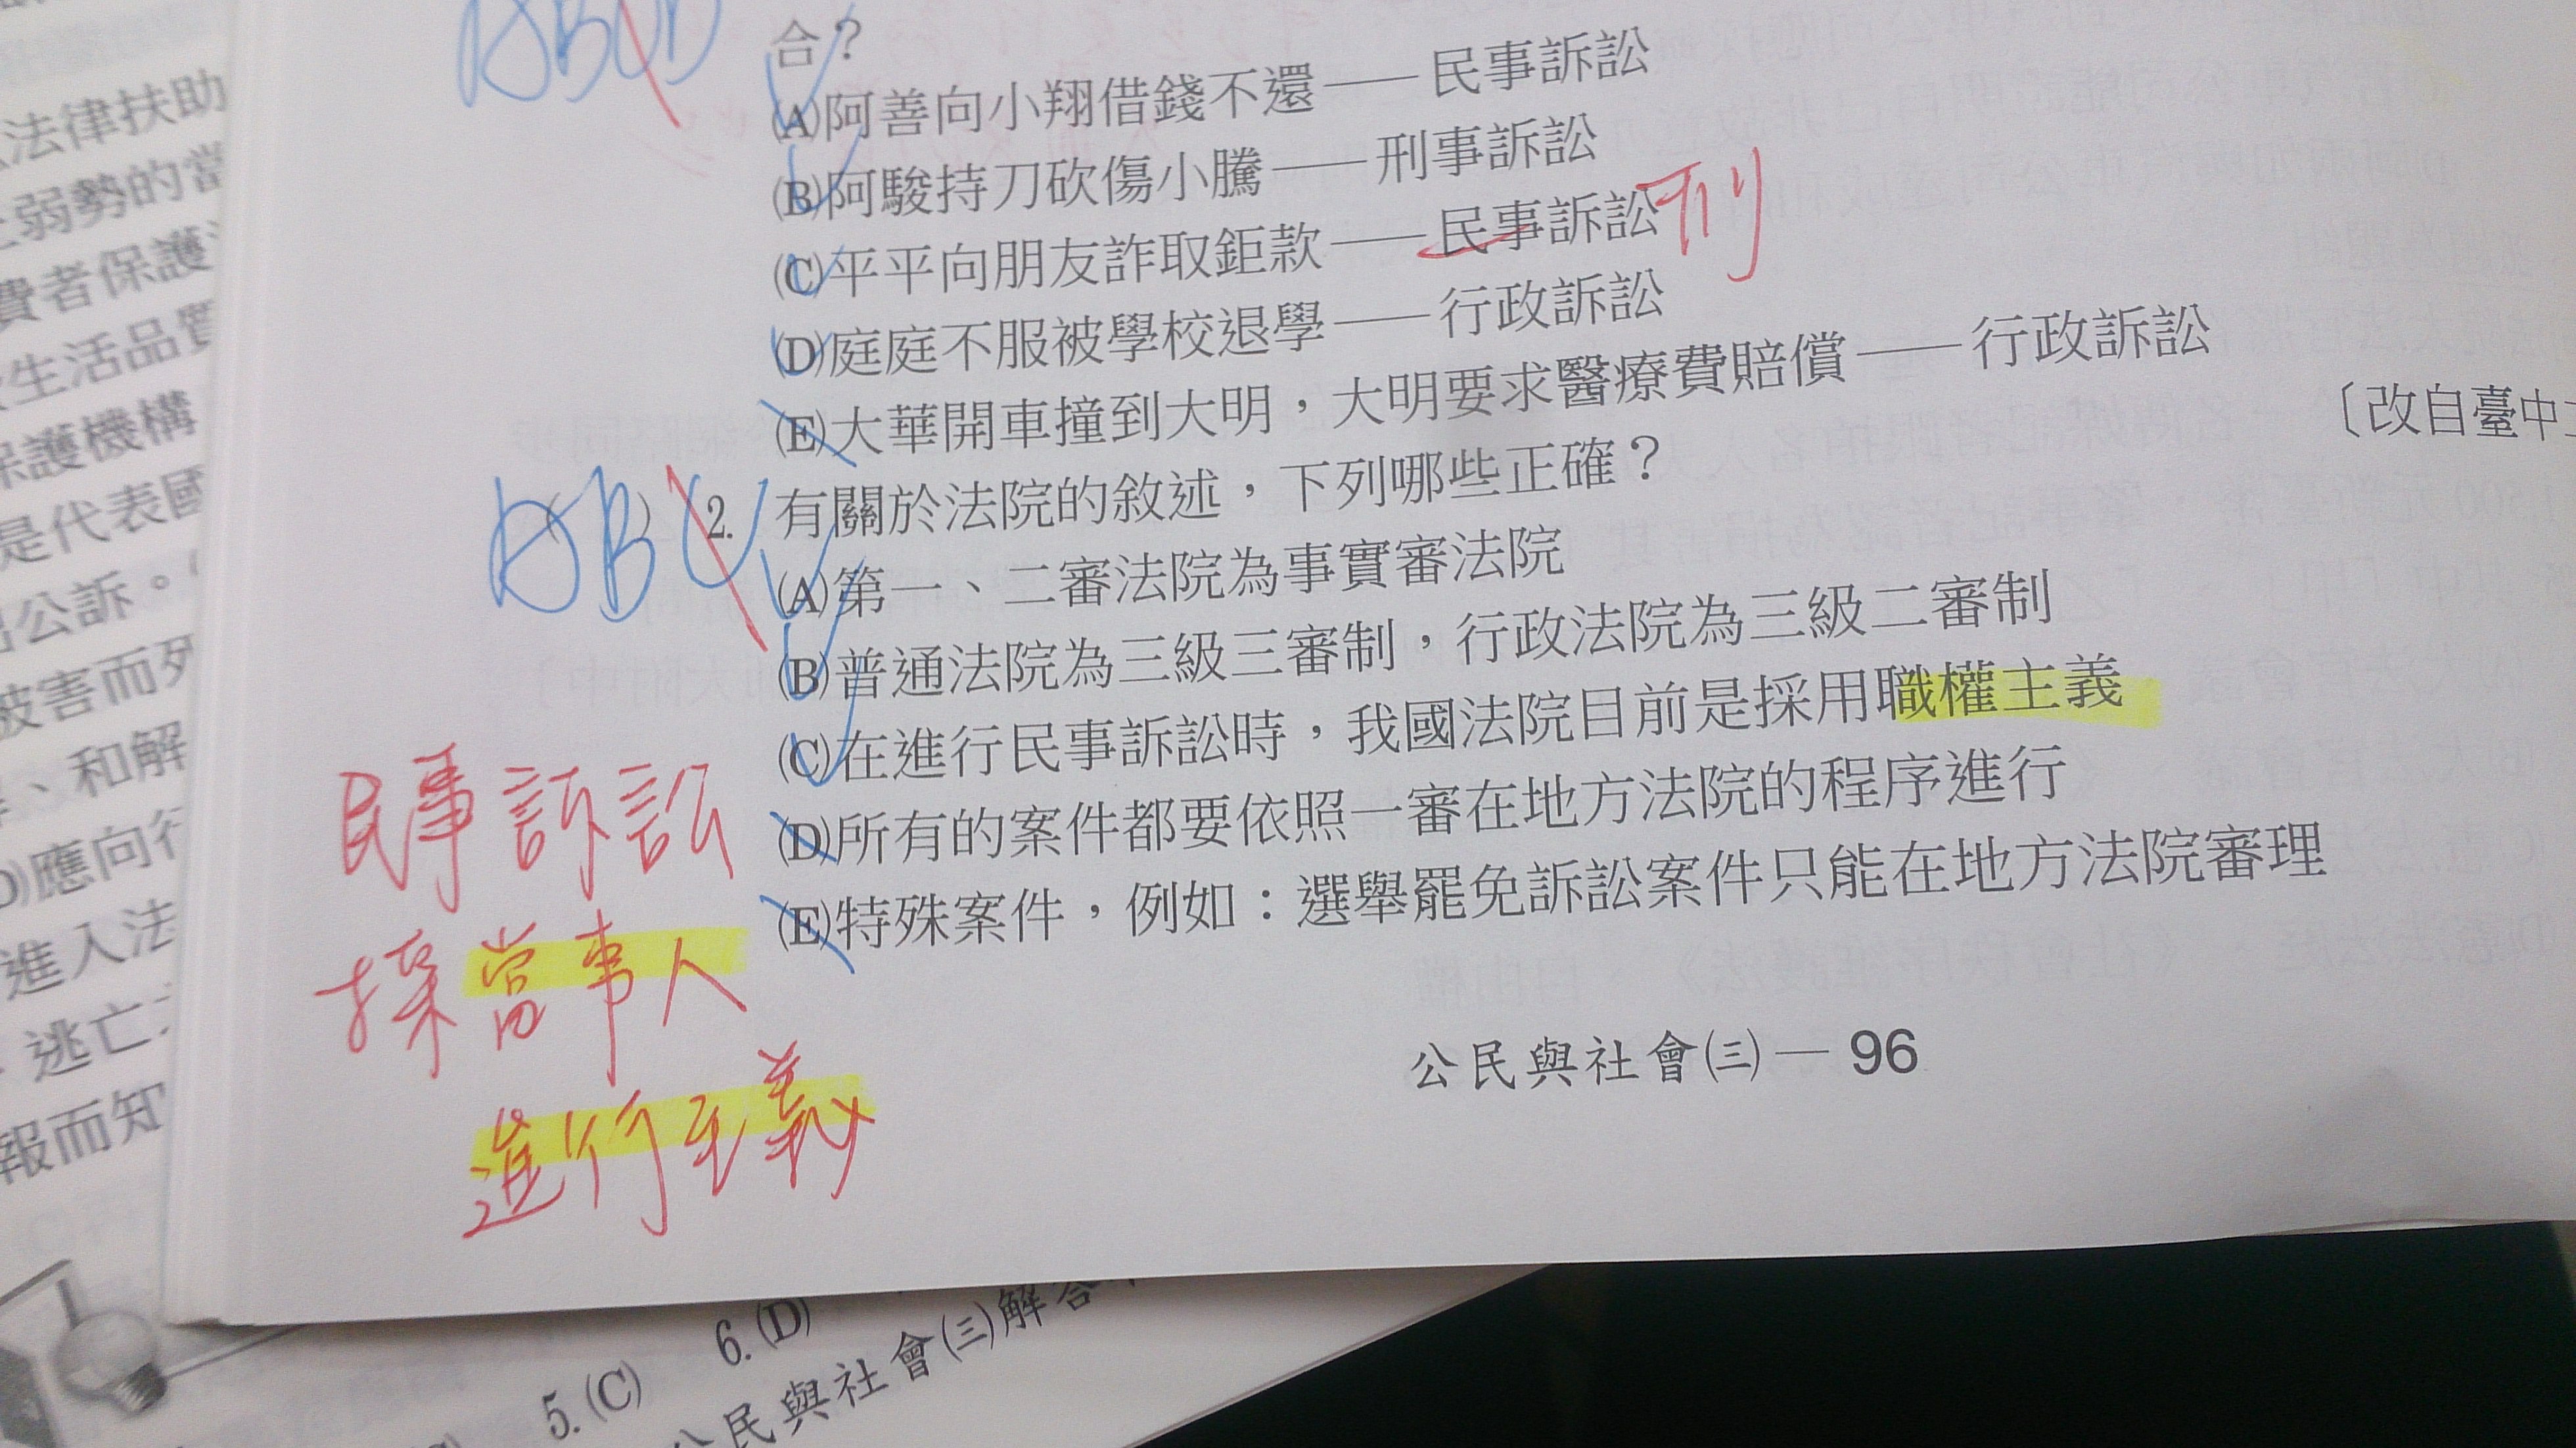 法律扶助
弱勢的當
費者保護
生活品質
保護機構
是代表國
出公訴。
被害而死
、和解
D)應向行
進入法
逃亡
報而知
ABCD
合？
(A)阿善向小翔借錢不還──民事訴訟
(B)阿駿持刀砍傷小騰──刑事訴訟
(C)平平向朋友詐取鉅款──民事訴訟 刑
(D)庭庭不服被學校退學──行政訴訟
(E)大華開車撞到大明，大明要求醫療費賠償──行政訴訟
〔改自臺中
ABC
( ) 2. 有關於法院的敘述，下列哪些正確？
(A)第一、二審法院為事實審法院
(B)普通法院為三級三審制，行政法院為三級二審制
(C)在進行民事訴訟時，我國法院目前是採用職權主義
(D)所有的案件都要依照一審在地方法院的程序進行
(E)特殊案件，例如：選舉罷免訴訟案件只能在地方法院審理
民事訴訟
採當事人
進行主義
公民與社會㈢─ 96
5. (C) 6. (D)
公民與社會㈢解答